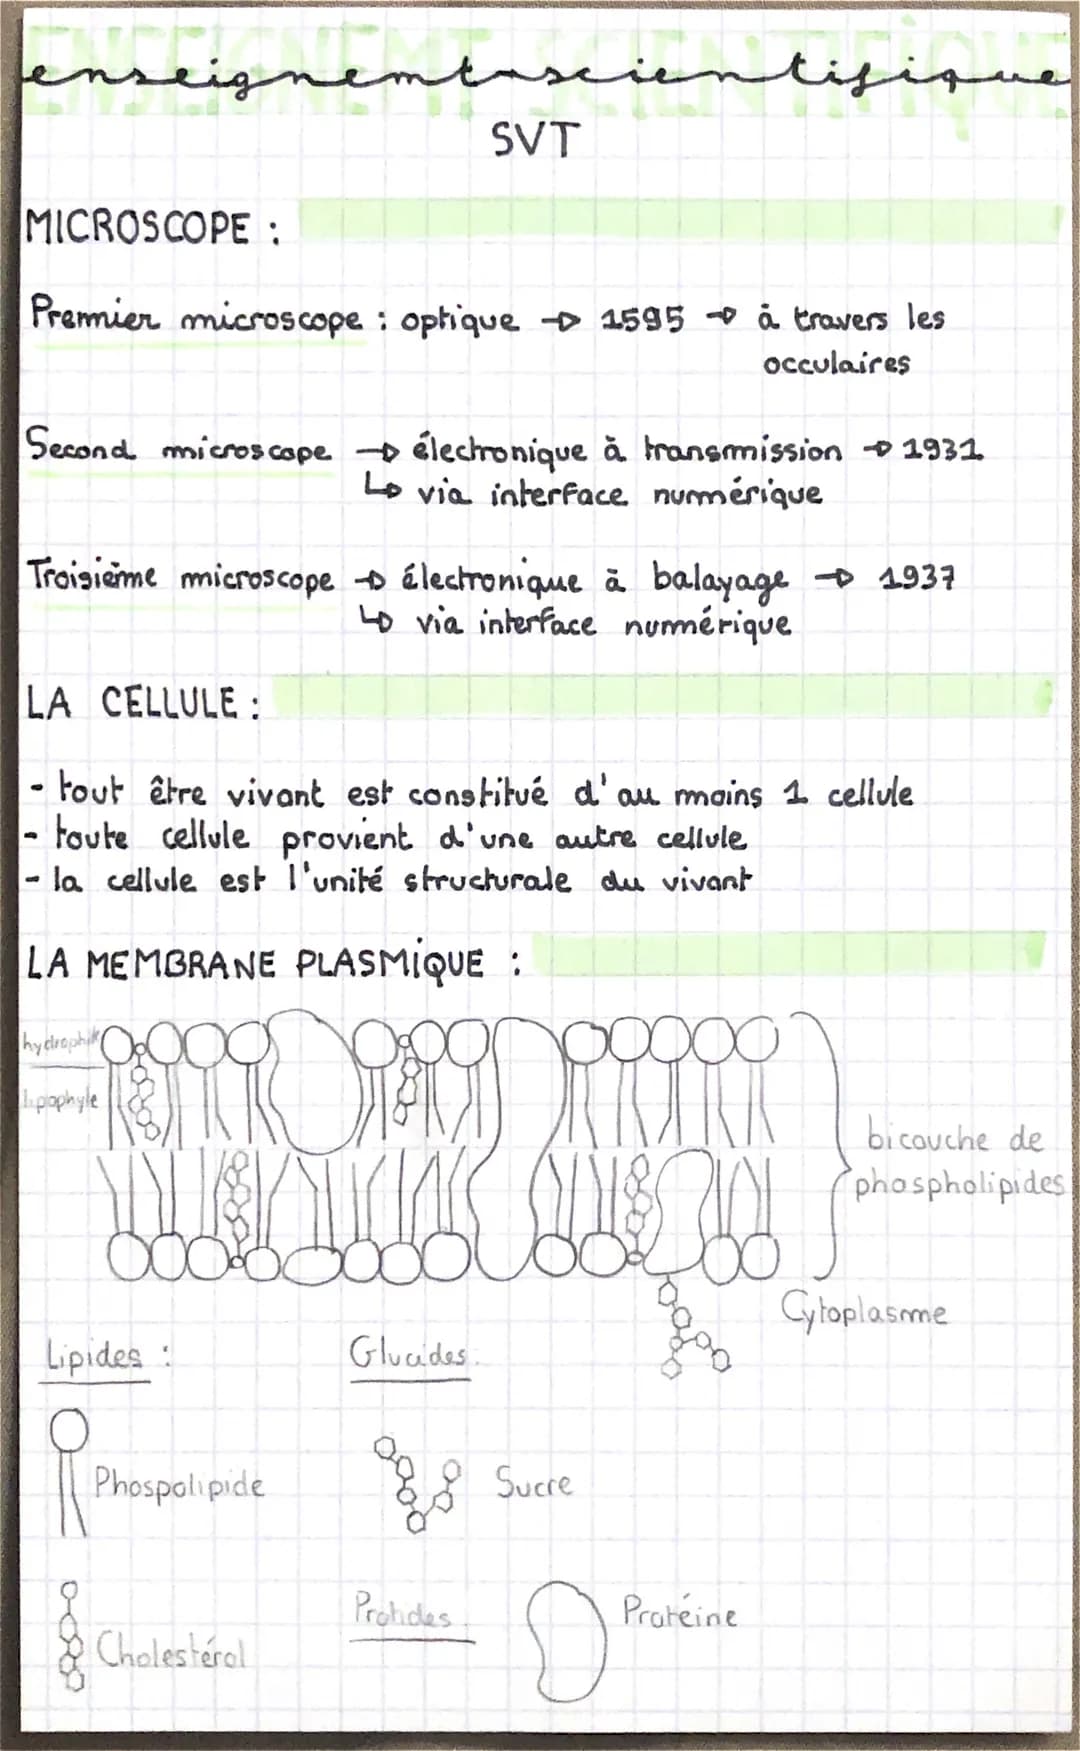 ENSEIGNEMT SCIENTIFIQUE
enseignemt scientifique
SVT
MICROSCOPE :
Premier microscope : optique → 1595 → à travers les
occulaires
Second microscope → électronique à transmission → 1931
↳ via interface numérique
Troisième microscope → électronique à balayage → 1937
↳ via interface numérique
LA CELLULE :
- tout être vivant est constitué d'au moins 1 cellule
- toute cellule provient d'une autre cellule
- la cellule est l'unité structurale du vivant
LA MEMBRANE PLASMIQUE :
hydrophile
lipophyle
bicouche de
phospholipides
Cytoplasme
Lipides :
Glucides.
Phospolipide
Sucre
Cholestérol
Protides.
Protéine